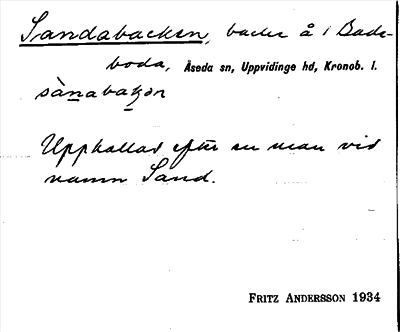 Sandabacken, backe å Bade-
boda, Åseda sn, Uppvidinge hd, Kronob. l.
sànabakən
Uppkallad efter en man vid
namn Sand.
FRITZ ANDERSSON 1934